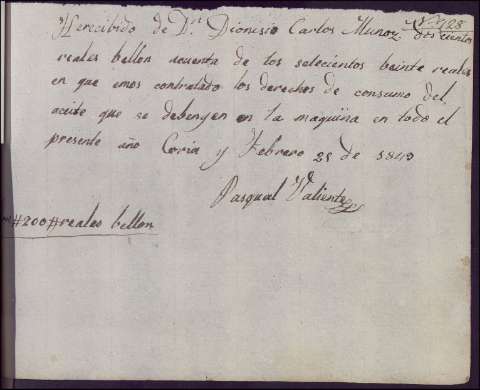 Nº 128
He recibido de Dn. Dionisio Carlos Munoz doscientos
reales bellon acuenta de los setecientos beinte reales
en que emos contratado los derechos de consumo del
aceite que se debenguen en la maquina en todo el
presente año Coria y Febrero 28 de 1849
Pasqual Valiente
#200#reales bellon